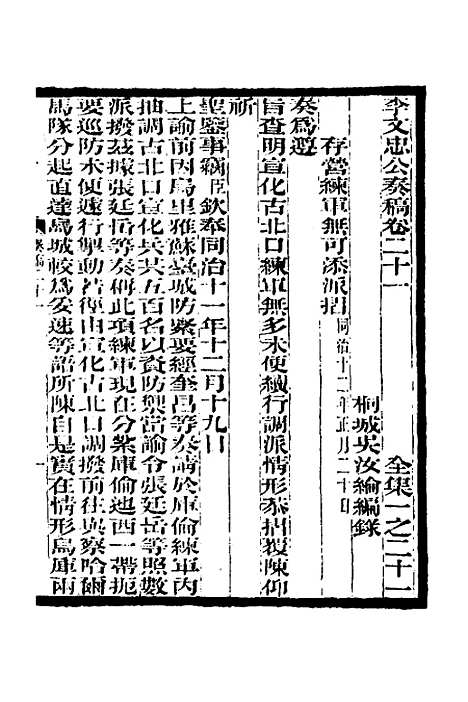 李文忠公奏稿卷二十一　全集一之二十一
桐城吳汝綸編錄
存營練軍無可添派摺 同治十二年正月二十日
奏爲遵
旨查明宣化古北口練軍無多未便續行調派情形恭摺覆陳仰
祈
聖鑒事竊臣欽奉同治十一年十二月十九日
上諭前因烏里雅蘇臺城防緊要經奎昌等奏請於庫倫練軍內
抽調古北口宣化兵共五百名以資防禦當諭令張廷岳等照數
派撥茲據張廷岳等奏稱此項練軍現在分紮庫倫迤西一帶扼
要巡防未便遽行掣動若徑由宣化古北口調撥前往與察哈爾
馬隊分起直達烏城較爲妥速等語所陳自是實在情形烏庫兩